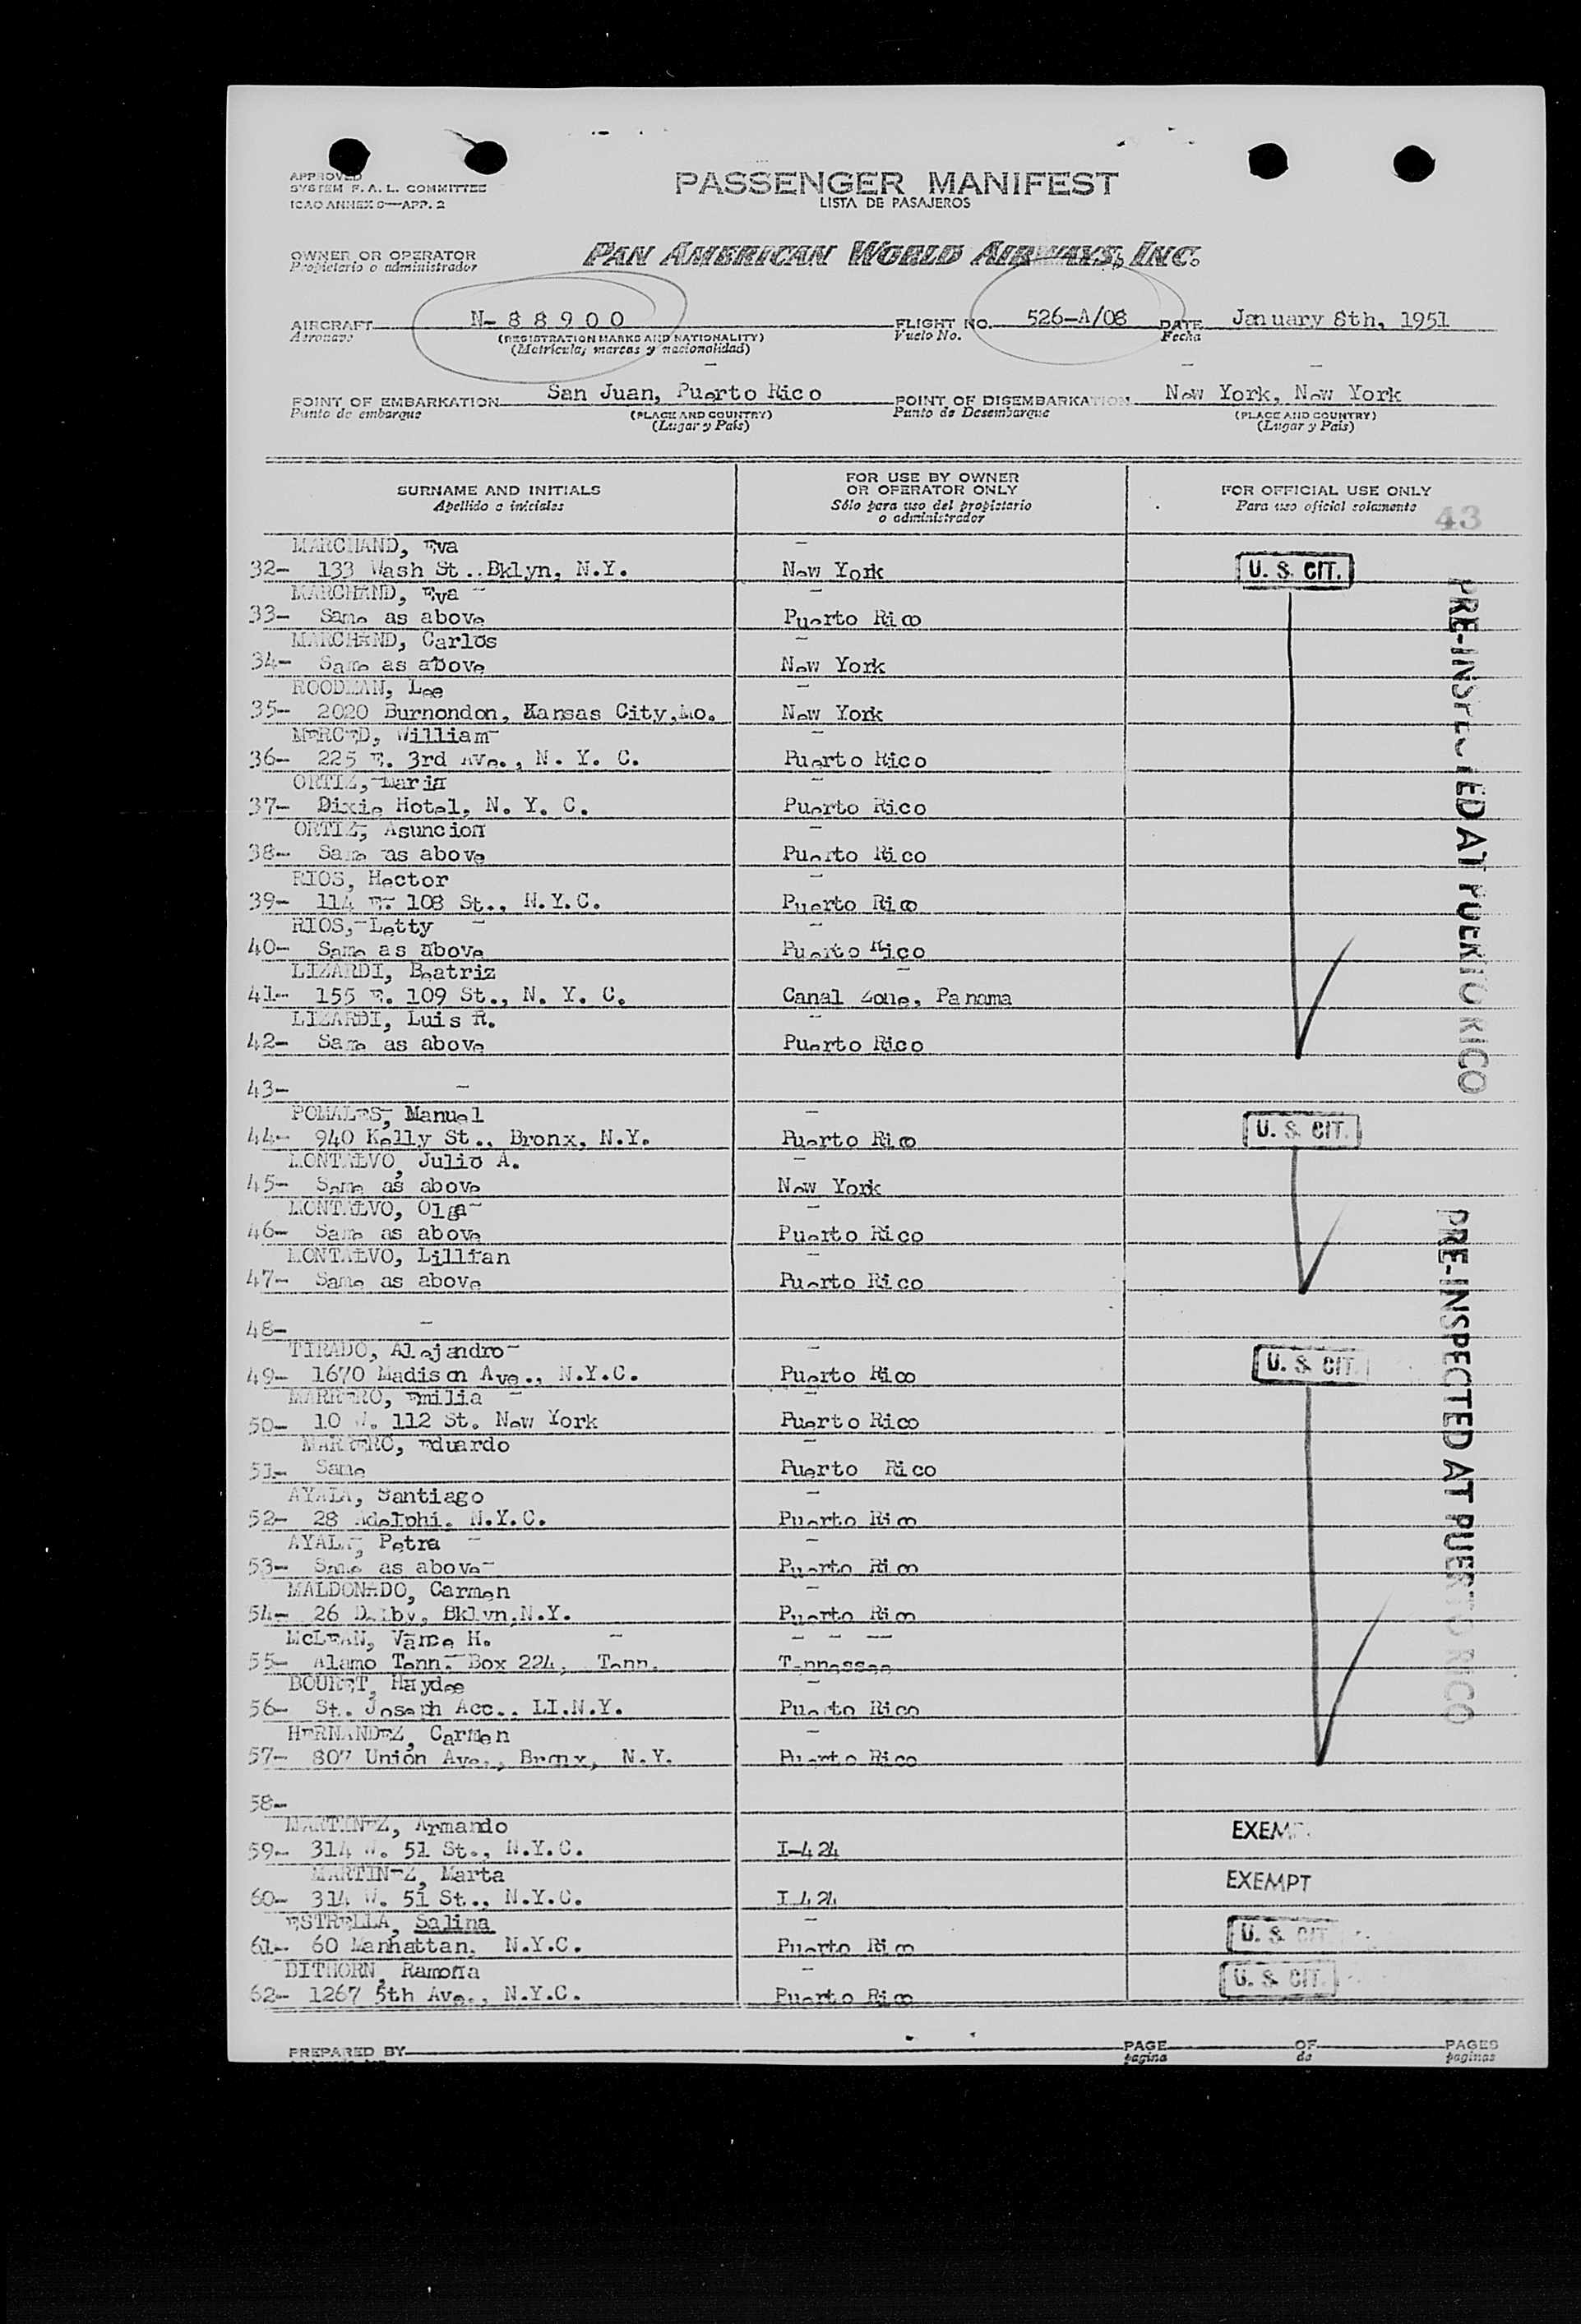 APPROVED
SYSTEM F. A. L. COMMITTEE
ICAO ANNEX 9—APP. 2
PASSENGER MANIFEST
LISTA DE PASAJEROS
OWNER OR OPERATOR
Propietario o administrador
PAN AMERICAN WORLD AIRWAYS, INC.
AIRCRAFT N-88900 FLIGHT NO. 526-A/08 DATE January 8th, 1951
Aeronave (REGISTRATION MARKS AND NATIONALITY) Vuelo No. Fecha
(Matrícula; marcas y nacionalidad)
POINT OF EMBARKATION San Juan, Puerto Rico POINT OF DISEMBARKATION New York, New York
Punto de embarque (PLACE AND COUNTRY) Punto de Desembarque (PLACE AND COUNTRY)
(Lugar y País) (Lugar y País)
SURNAME AND INITIALS FOR USE BY OWNER OR OPERATOR ONLY FOR OFFICIAL USE ONLY
Apellido e iniciales Sólo para uso del propietario o administrador Para uso oficial solamente
43
MARCHAND, Eva
32- 133 Wash St..Bklyn, N.Y. New York U. S. CIT.
MARCHAND, Eva
33- Same as above Puerto Rico
MARCHAND, Carlos
34- Same as above New York
ROODMAN, Lee
35- 2020 Burnondon, Kansas City,Mo. New York
MERCED, William
36- 225 E. 3rd Ave., N. Y. C. Puerto Rico
ORTIZ, Maria
37- Dixie Hotel, N. Y. C. Puerto Rico
ORTIZ, Asuncion
38- Same as above Puerto Rico
RIOS, Hector
39- 114 E. 108 St., N.Y.C. Puerto Rico
RIOS, Letty
40- Same as above Puerto Rico
LIZARDI, Beatriz
41- 155 E. 109 St., N. Y. C. Canal Zone, Panama
LIZARDI, Luis R.
42- Same as above Puerto Rico
PRE-INSPECTED AT PUERTO RICO
43-
POMALES, Manuel
44- 940 Kelly St., Bronx, N.Y. Puerto Rico U. S. CIT.
MONTALVO, Julio A.
45- Same as above New York
MONTALVO, Olga
46- Same as above Puerto Rico
MONTALVO, Lillian
47- Same as above Puerto Rico
48-
TIRADO, Alejandro
49- 1670 Madison Ave., N.Y.C. Puerto Rico U. S. CIT.
MARRERO, Emilia
50- 10 W. 112 St. New York Puerto Rico
MARRERO, Eduardo
51- Same Puerto Rico
AYALA, Santiago
52- 28 Adelphi. N.Y.C. Puerto Rico
AYALA, Petra
53- Same as above Puerto Rico
MALDONADO, Carmen
54- 26 Bklyn,N.Y. Puerto Rico
McLEAN, Vance H.
55- Alamo Tenn. Box 224, Tenn. Tennessee
BOURET, Haydee
56- St. Joseph Acc., LI.N.Y. Puerto Rico
HERNANDEZ, Carmen
57- 807 Union Ave., Bronx, N.Y. Puerto Rico
PRE-INSPECTED AT PUERTO RICO
58-
MARTINEZ, Armando
59- 314 W. 51 St., N.Y.C. I-424 EXEMP
MARTINEZ, Marta
60- 314 W. 51 St., N.Y.C. I 424 EXEMPT
ESTRELLA, Salina
61- 60 Manhattan, N.Y.C. Puerto Rico U. S. CIT.
DITHORN, Ramona
62- 1267 5th Ave., N.Y.C. Puerto Rico U. S. CIT.
PREPARED BY PAGE OF PAGES
pagina de paginas